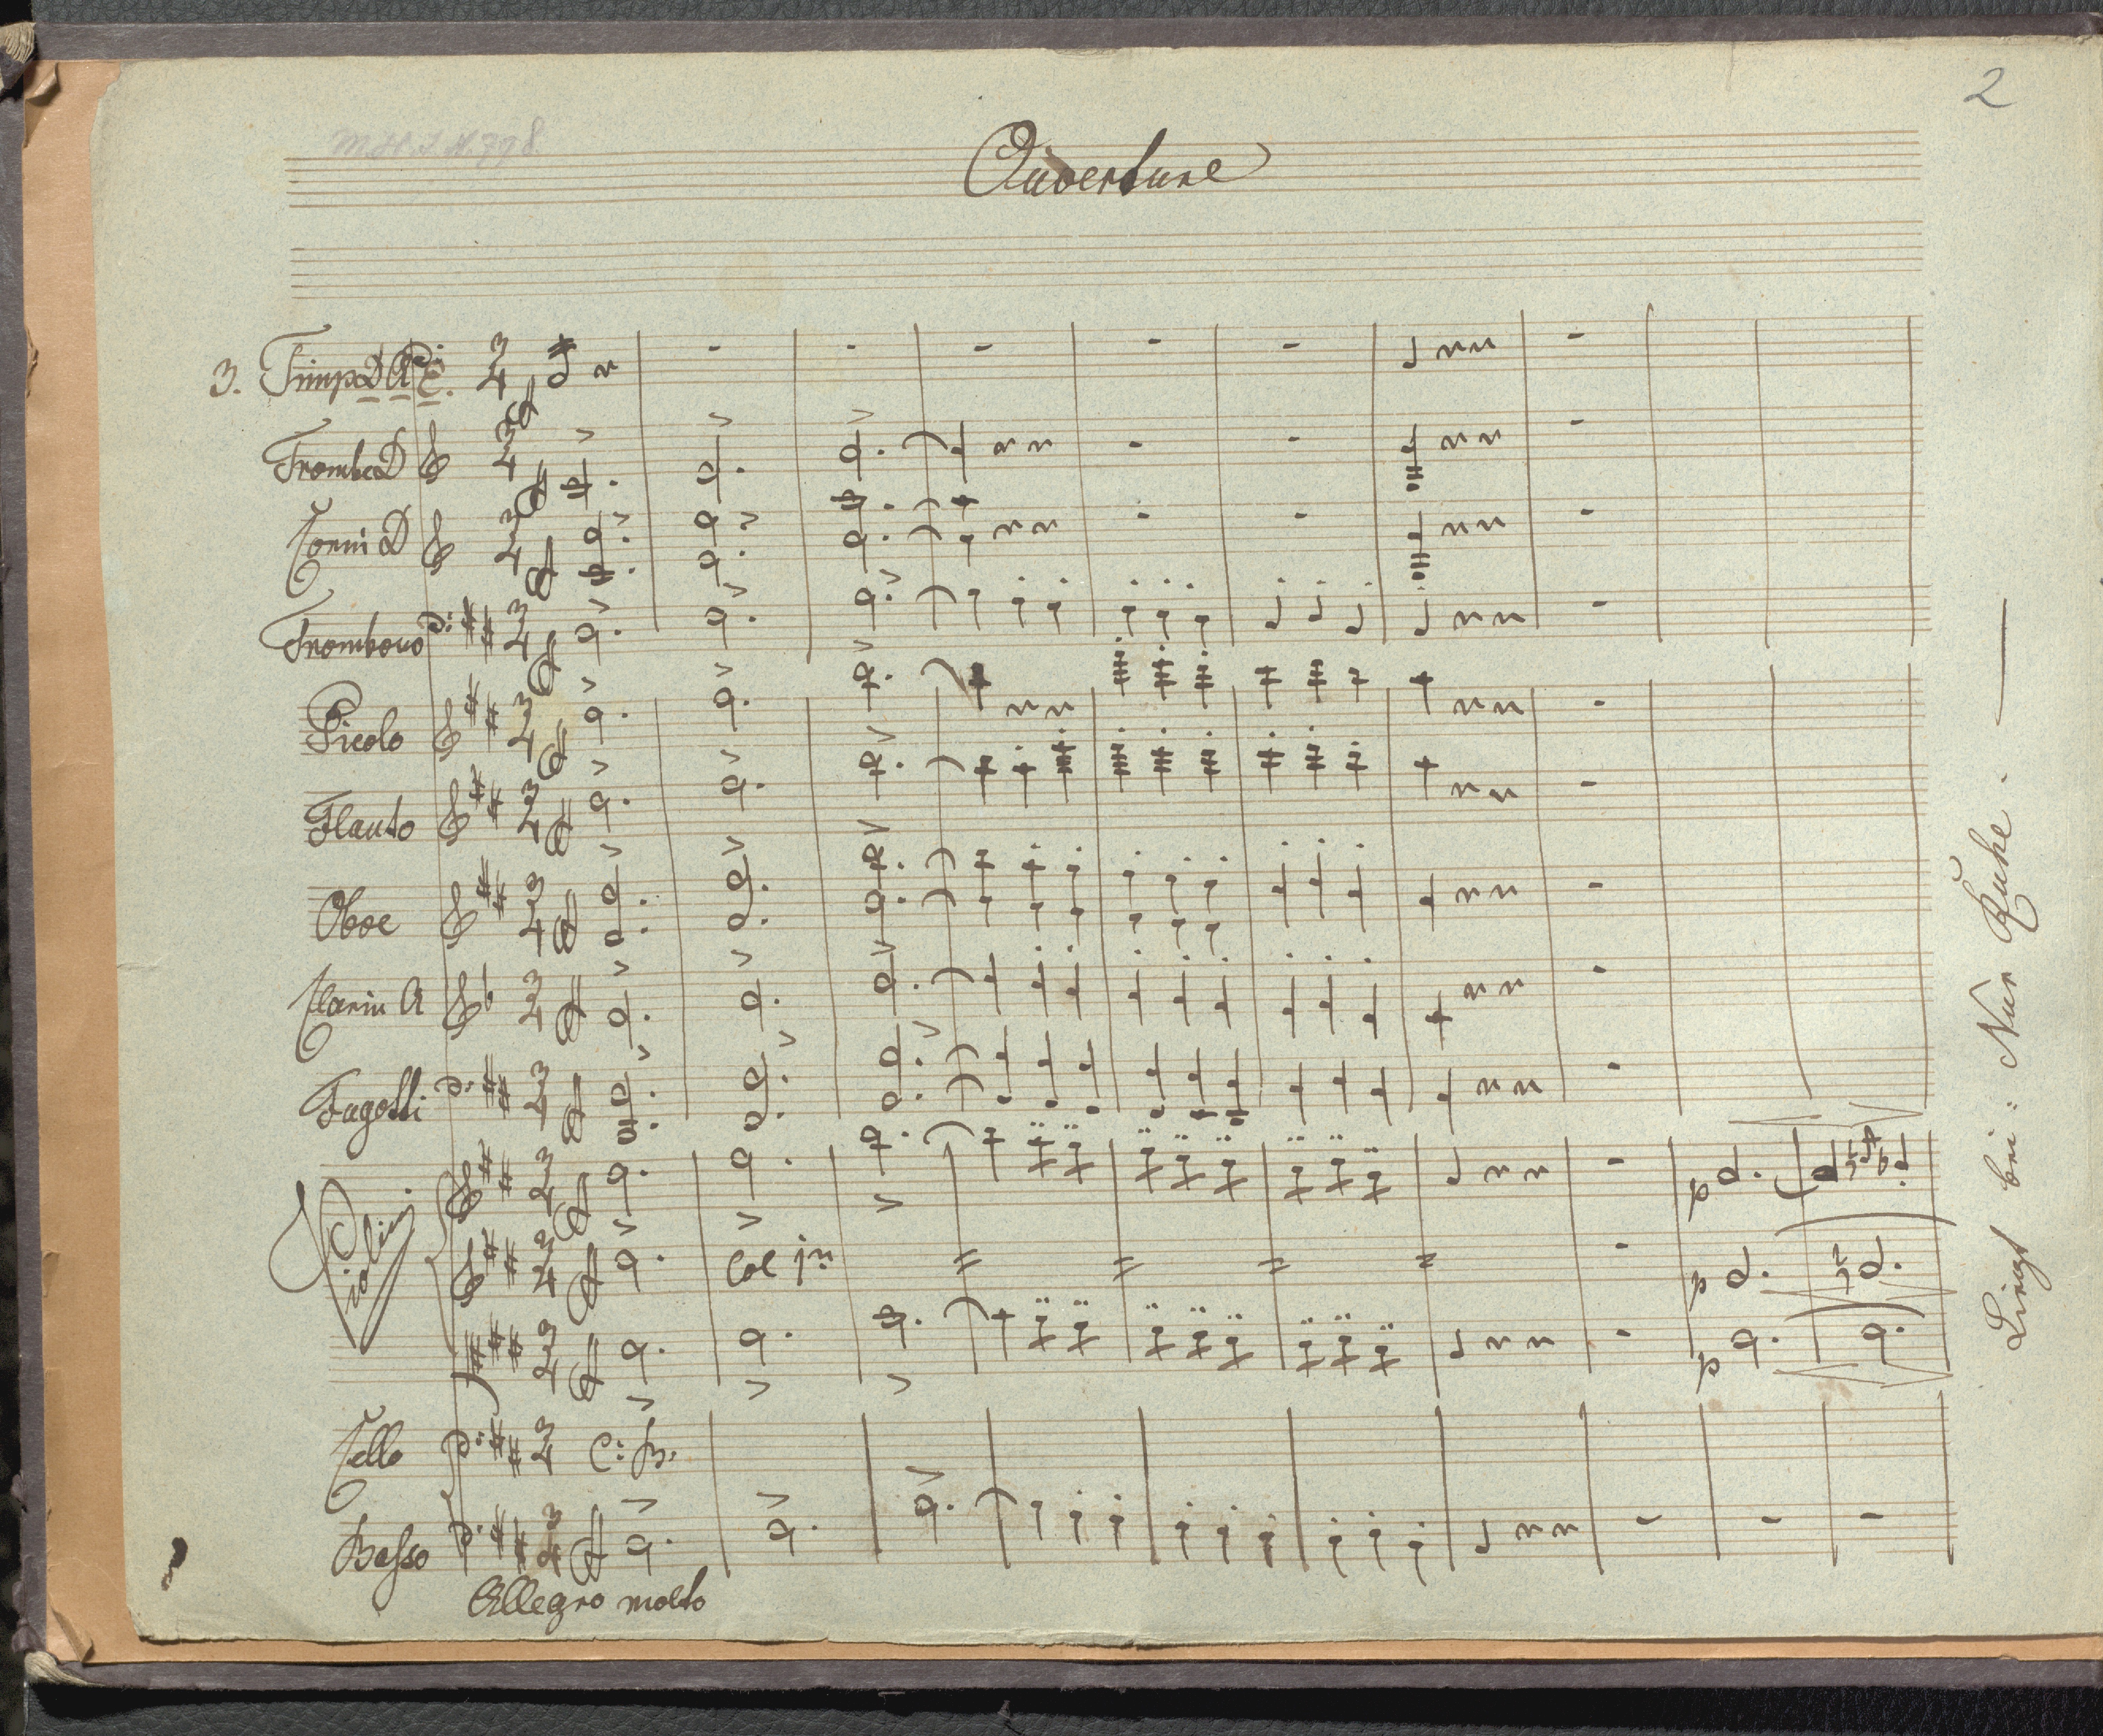 2
M.H.I.N. 798
Ouverture
3. Timp D A E.
Tromba D
Corni D
Trombono
Picolo
Flauto
Oboe
Clarin A
Fagotti
Violini
p
Col 1mo
p
p
Cello C: B.
Basso
Allegro molto
Liegt bei: Nur Ruhe. —